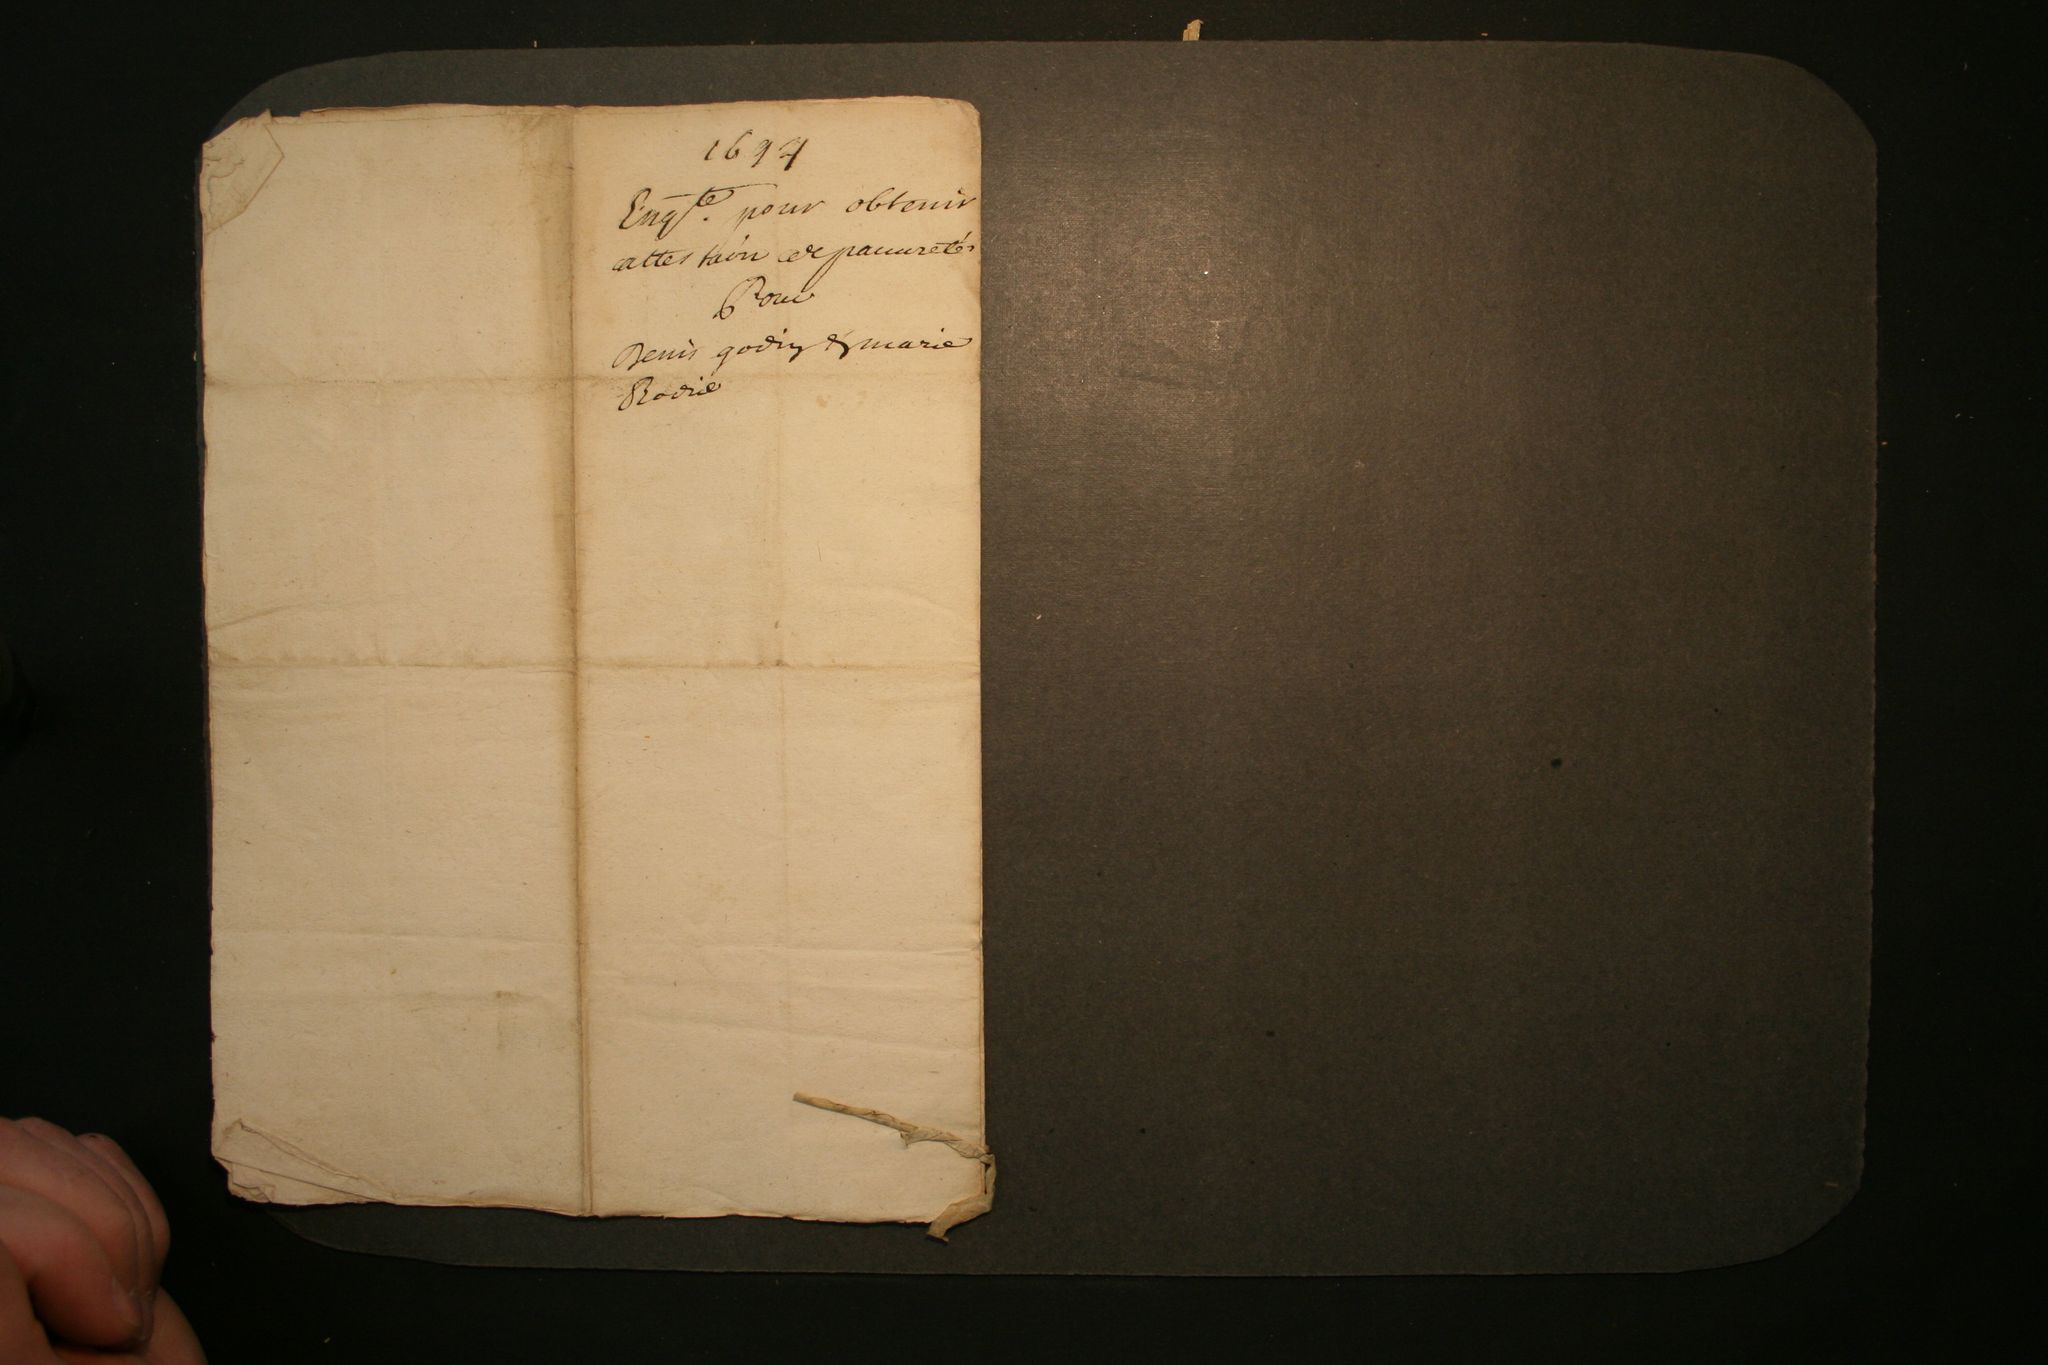 1694
Enq.te pour obtenir
attestaion de pauuretés
Pour
Denis godin & marie
Rodie